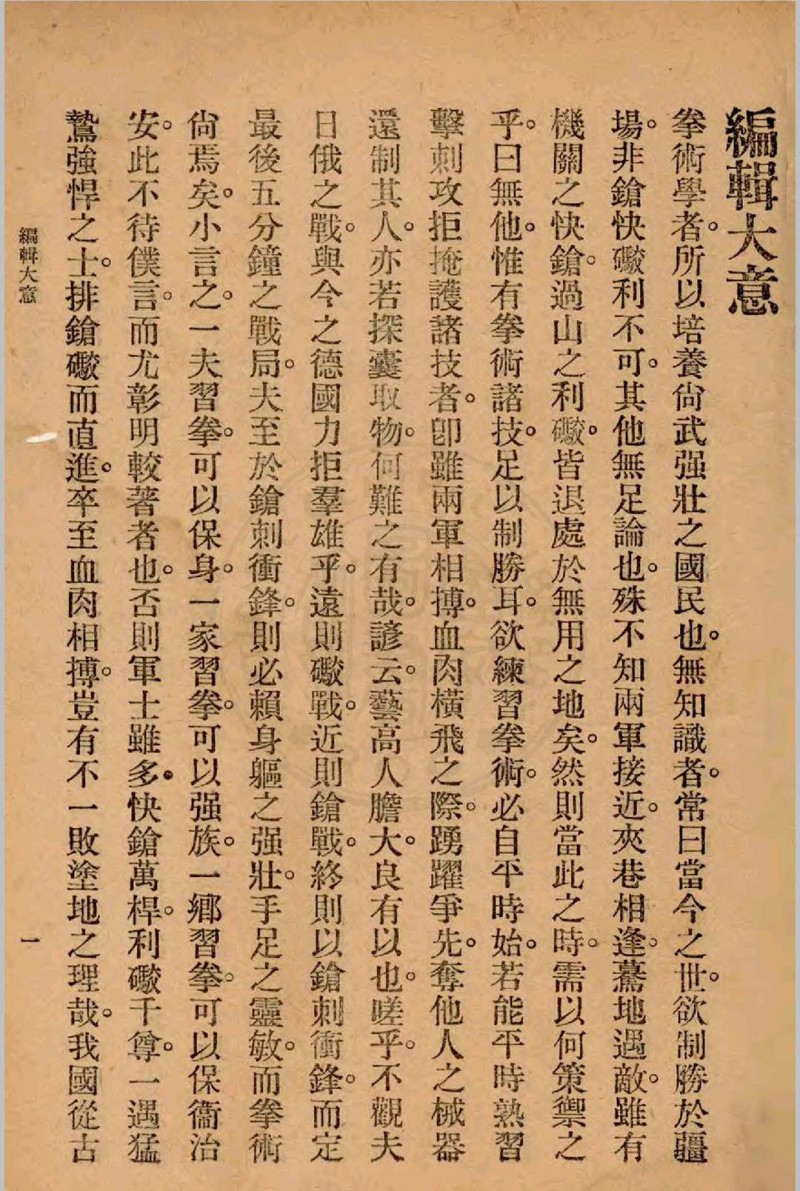 編輯大意
拳術學者。所以培養尙武强壯之國民也。無知識者。常曰當今之世。欲制勝於疆
場。非鎗快礮利不可。其他無足論也。殊不知兩軍接近。夾巷相逢。驀地遇敵。雖有
機關之快鎗。過山之利礮。皆退處於無用之地矣。然則當此之時。需以何策禦之
乎。曰無他。惟有拳術諸技。足以制勝耳。欲練習拳術。必自平時始。若能平時熟習
擊刺攻拒掩護諸技者。卽雖兩軍相搏。血肉橫飛之際。踴躍爭先。奪他人之械器
還制其人。亦若探囊取物。何難之有哉。諺云。藝高人膽大。良有以也。嗟乎。不觀夫
日俄之戰。與今之德國力拒羣雄乎。遠則礮戰。近則鎗戰。終則以鎗刺衝鋒。而定
最後五分鐘之戰局。夫至於鎗刺衝鋒。則必賴身軀之强壯。手足之靈敏。而拳術
尙焉矣。小言之。一夫習拳。可以保身。一家習拳。可以强族。一鄉習拳。可以保衞治
安。此不待僕言。而尤彰明較著者也。否則軍士雖多。快鎗萬桿。利礮千尊。一遇猛
鷙強悍之士。排鎗礮而直進。卒至血肉相搏。豈有不一敗塗地之理哉。我國從古
編輯大意
一